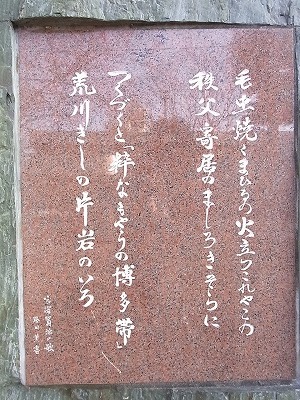 毛虫焼くまひるの火立つこれやこの
秩父寄居のましろきそらに
つくづくと「粋なもやうの博多帯」
荒川ぎしの片岩のいろ
宮澤賢治の歌
書